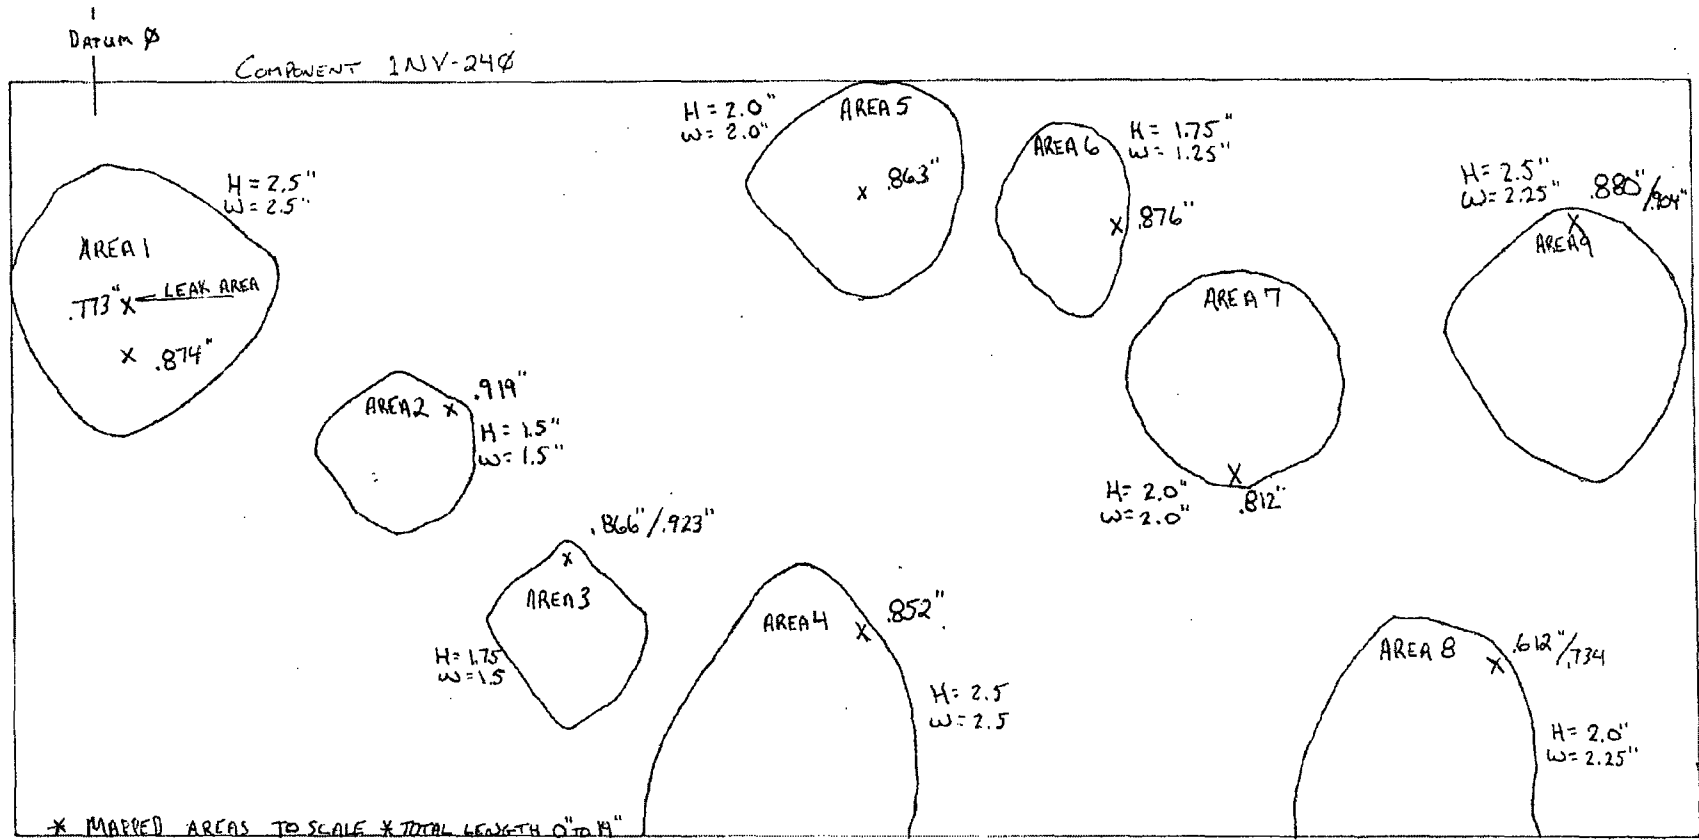 DATUM Ø
COMPONENT 1NV-24Ø
AREA 1
H = 2.5"
W = 2.5"
.773" X ← LEAK AREA
X .874"
AREA 2 X .919"
H = 1.5"
W = 1.5"
.866"/.923"
X
AREA 3
H = 1.75
W = 1.5
AREA 4
X .852"
H = 2.5
W = 2.5
H = 2.0"
W = 2.0"
AREA 5
X .863"
AREA 6
H = 1.75"
W = 1.25"
X .876"
AREA 7
X
.812"
H = 2.0"
W = 2.0"
AREA 8
X .612"/.734
H = 2.0"
W = 2.25"
H = 2.5"
W = 2.25"
.880"/.904"
X
AREA 9
* MAPPED AREAS TO SCALE * TOTAL LENGTH 0" TO